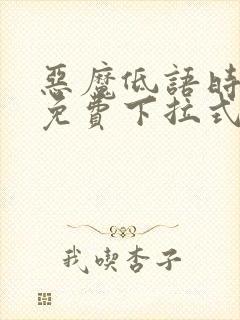 惡魔低語時
免費下拉式
我喫杏子